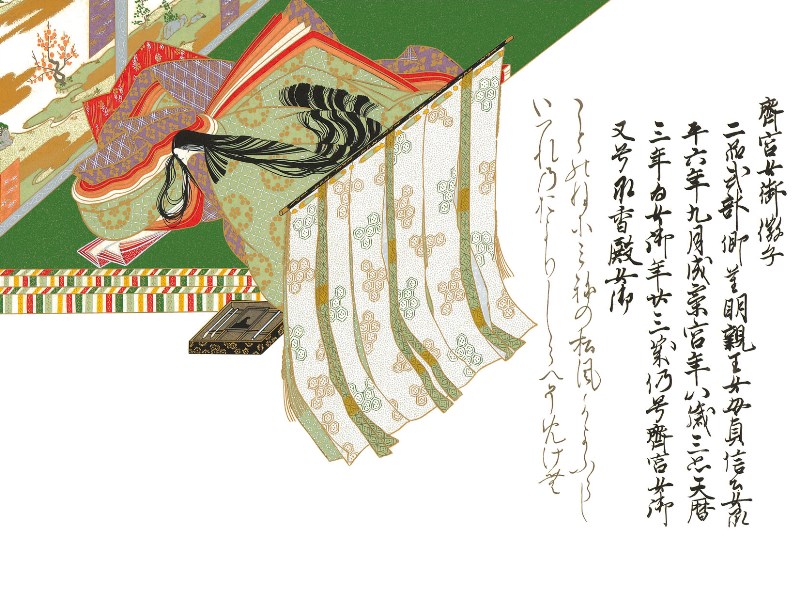 齋宮女御徽子
二品式部卿重明親王女母貞信公女承
平六年九月成斎宮年八歳三品天暦
三年為女御年廿三歳仍号齋宮女御
又号承香殿女御
ことのねにみねの松風かよふらし
いつれのおよりしらへそめけむ